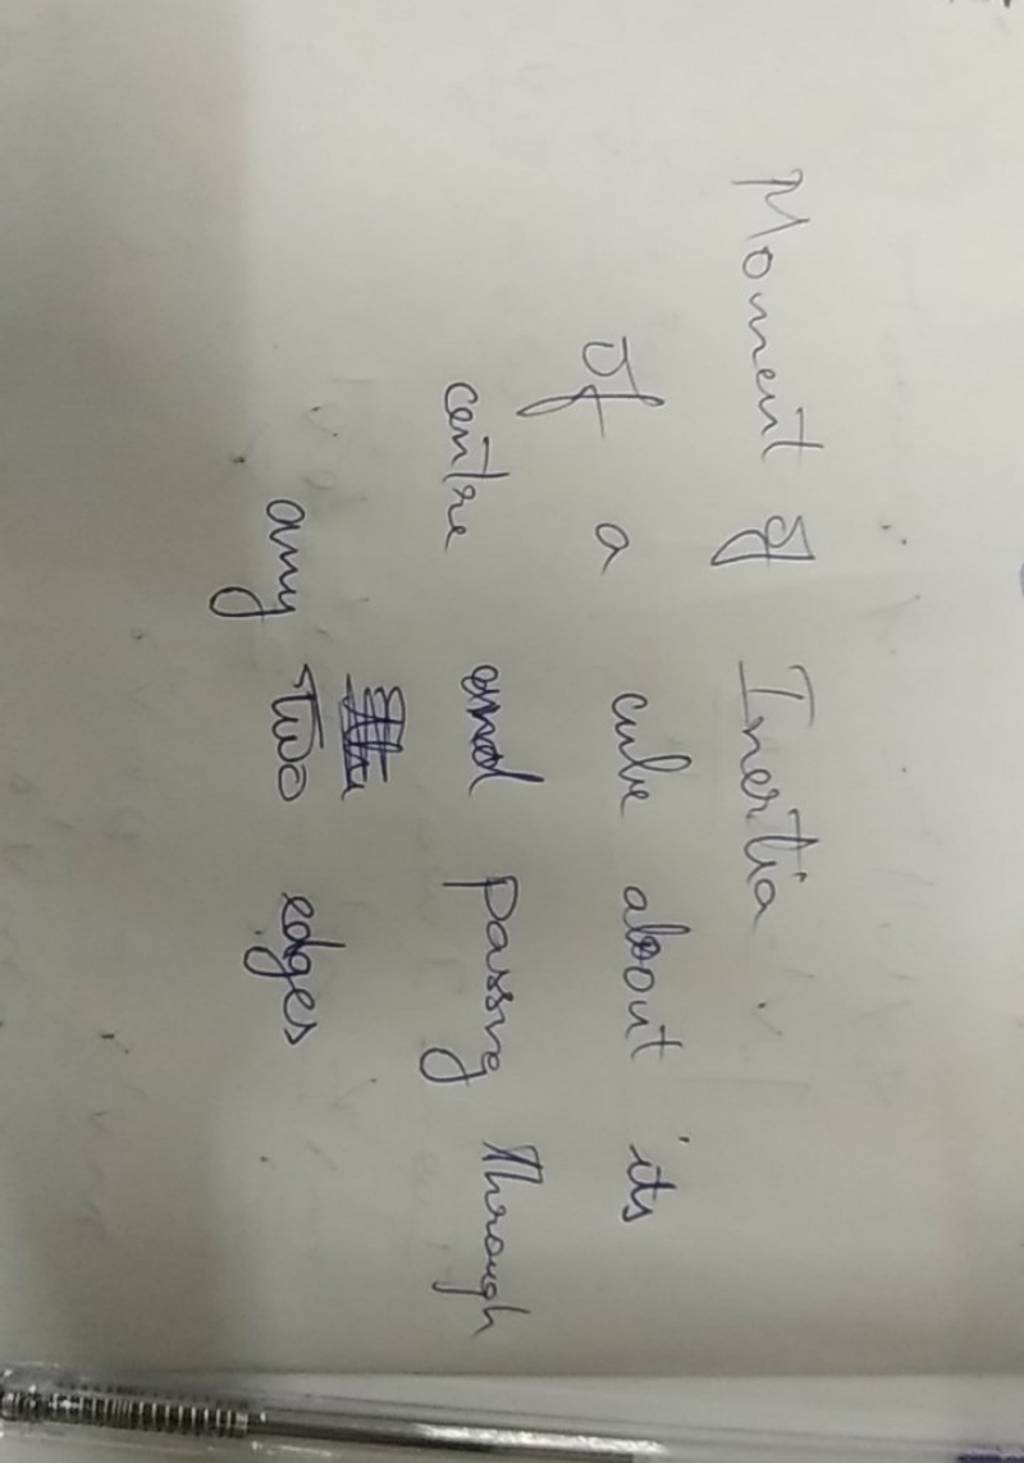 Moment of Inertia
of a cube about its
centre and passing through
any two edges